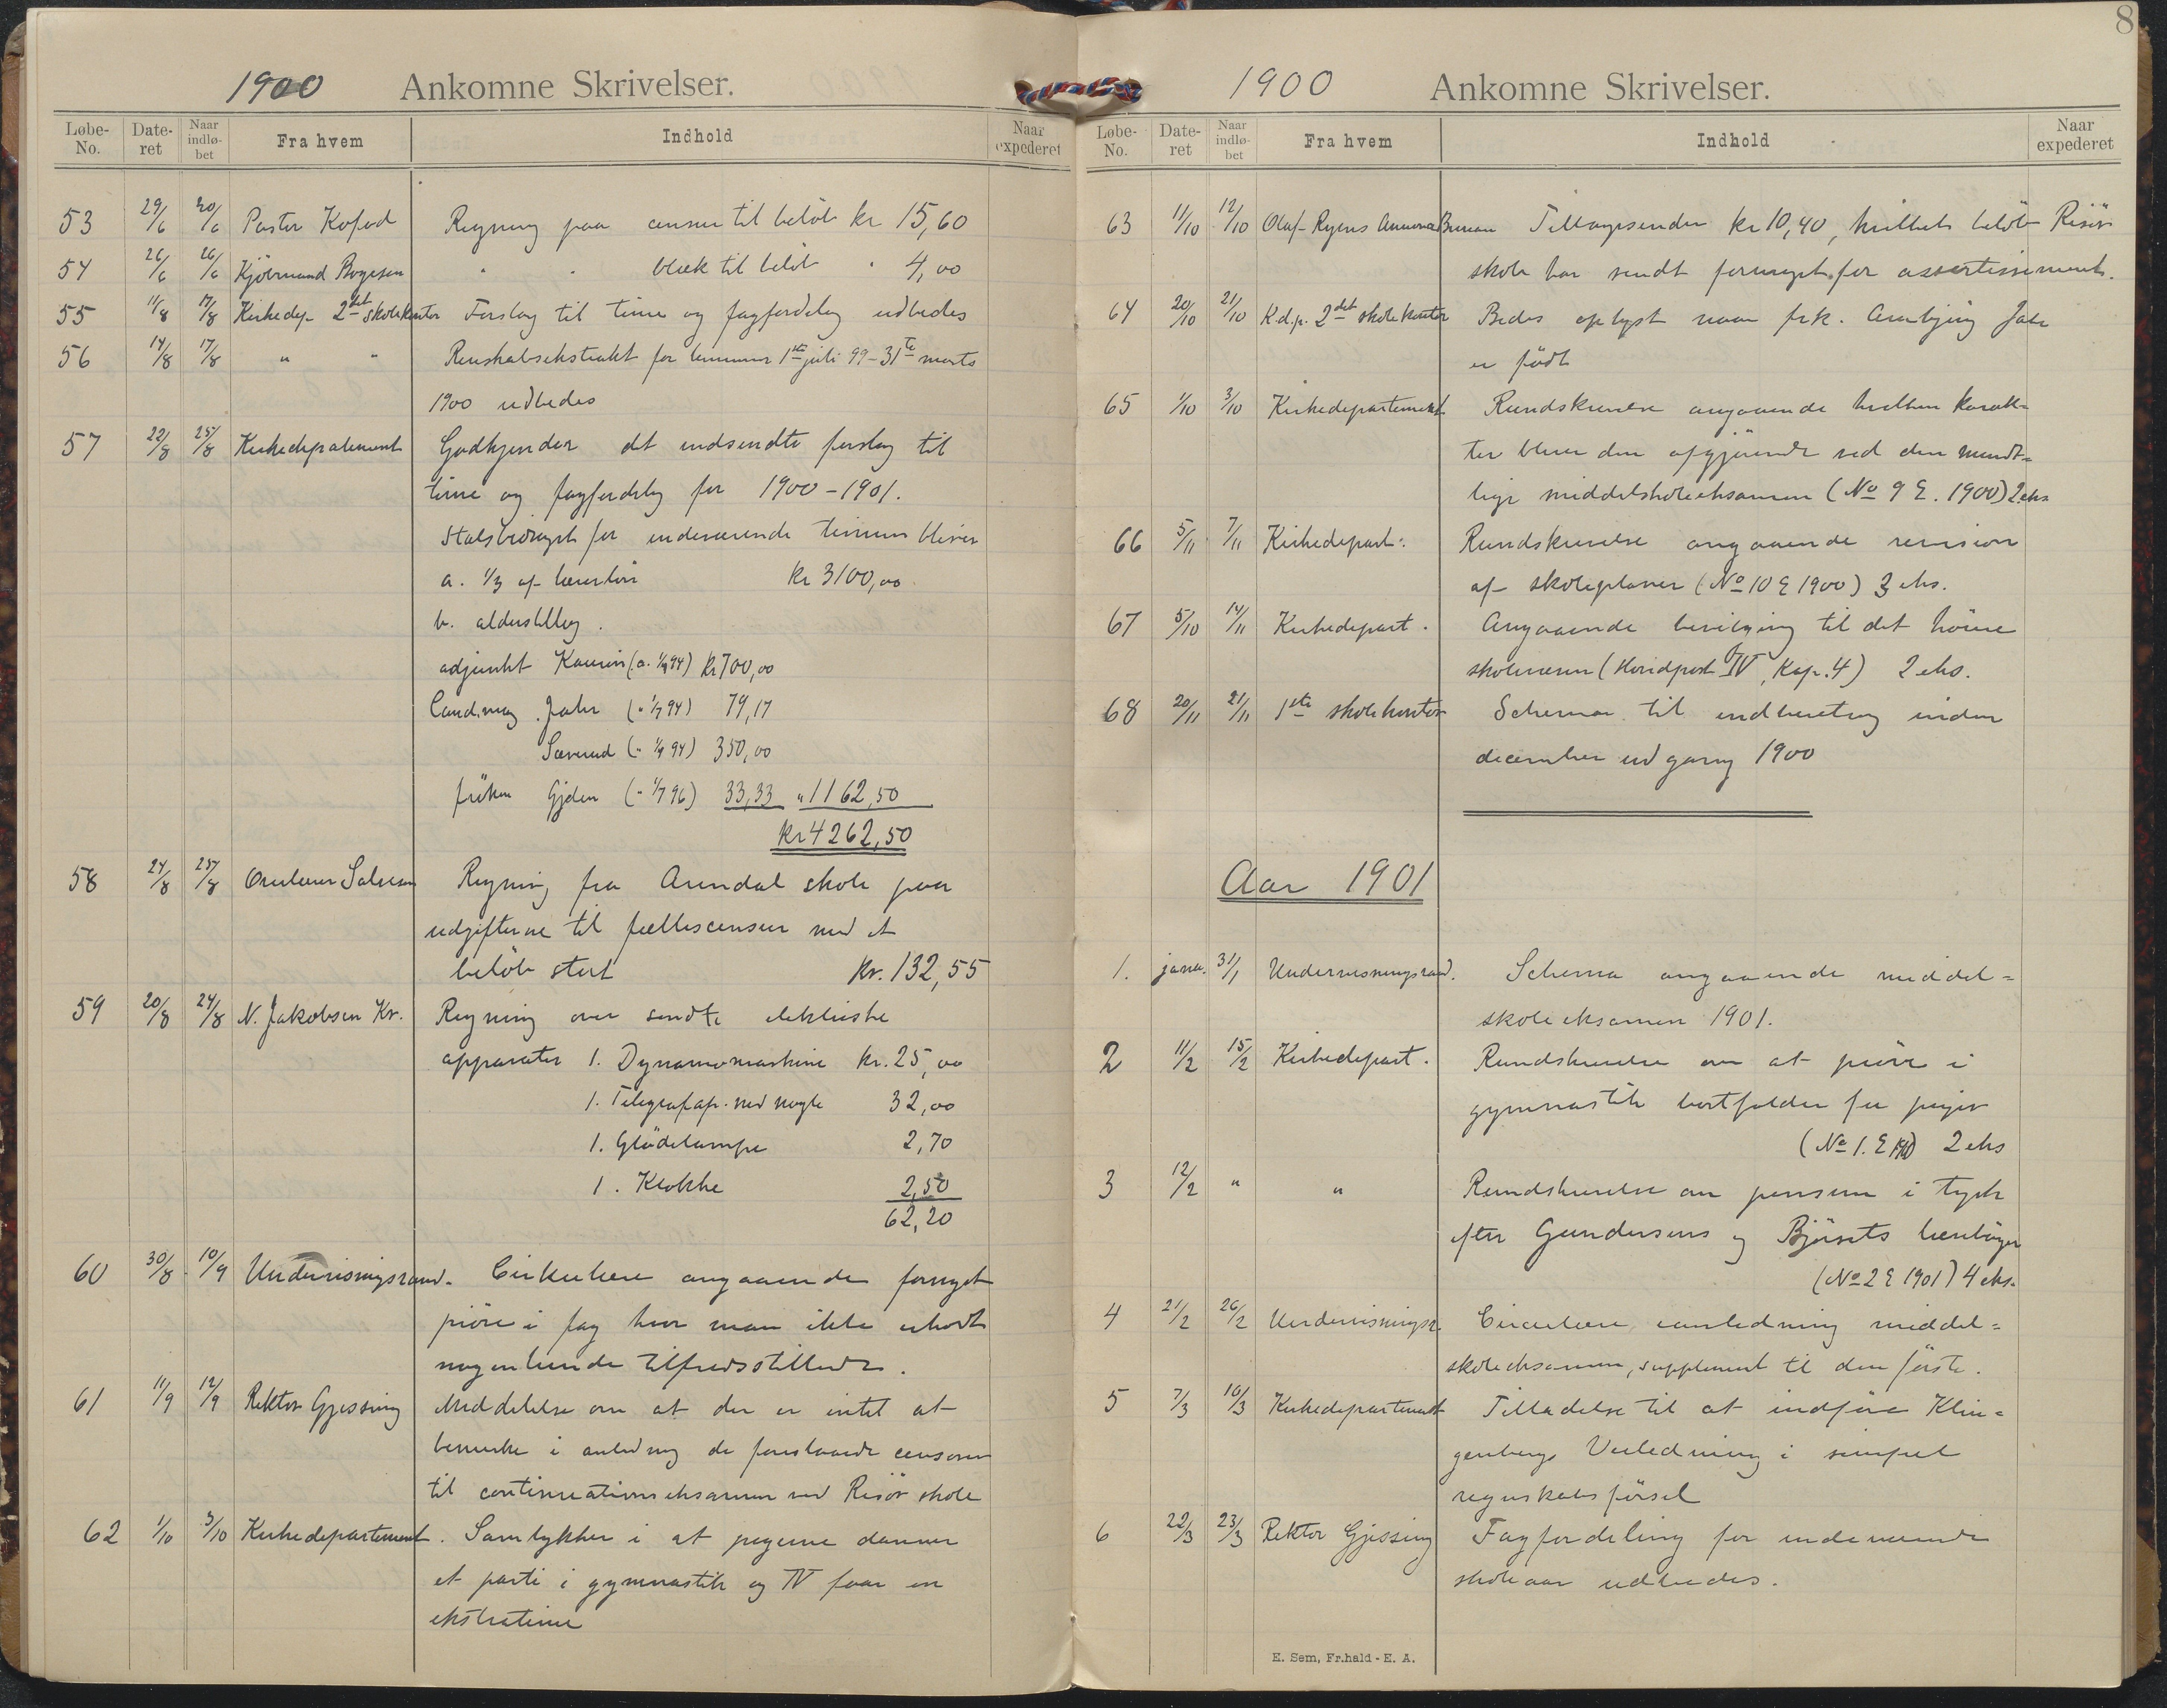 1900 Ankomne Skrivelser.
Løbe-No. Date-ret Naar indlø-bet Fra hvem Indhold Naar expederet
53 29/6 30/6 Pastor Kofod Regning paa censur til beløb kr 15,60
54 26/6 26/6 Kjöbmand Bogesen " " blæk til beløb " 4,00
55 11/8 17/8 Kirkedep. 2det skolekontor Forslag til time og fagfordeling udbedes
56 14/8 17/8 " " Renskabsekstrakt for terminen 1ste juli 99 - 31te marts
1900 udbedes
57 22/8 25/8 Kirkedepatement Godkjender det indsendte forslag til
time og fagfordelg for 1900-1901.
Statsbidraget for indeværende termin bliver
a. 1/3 af lærerløn kr 3100,00
b. alderstillæg.
adjunkt (a. 1/9 94) kr 700,00
Cand. mag. Jahr (" 1/7 94) 79,17
(" 1/9 94) 350,00
fröken Gjden (" 1/7 96) 33,33 " 1162,50
kr 4262,50
58 24/8 25/8 Overlærer Salvesen Regning fra Arendal skole paa
udgifterne til fællescensur med et
beløb stort kr. 132,55
59 20/8 24/8 N. Jakobsen Kr. Regning over sendte elektriske
apparater 1. Dynamomaskine kr. 25,00
1. Telegrafap. med nøgle 32,00
1. Glödelampe 2,70
1. Klokke 2,50
62,20
60 30/8 10/9 Undervisningsraad. Cirkulære angaaende fornyet
pröve i fag hvor man ikke erholdt
nogenlunde tilfredsstillende.
61 11/9 12/9 Rektor Gjessing Meddelelse om at der er intet at
bemerke i anledng de foreslaaede censorer
til continuationseksamen ved Risör skole
62 1/10 3/10 Kirkedepartement. Samtykker i at pigerne danner
et parti i gymnastik og IV faar en
ekstratime
8
1900 Ankomne Skrivelser.
Løbe-No. Date-ret Naar indlø-bet Fra hvem Indhold Naar expederet
63 11/10 12/10 Olaf Ryens Annonce Bureau Tilbagesender kr 10,40, hvilket beløb Risör
skole har sendt formeget for assertissement.
64 20/10 21/10 K.d.p. 2det skolekontor Bedes oplyst naar frk. Jahr
er født
65 1/10 3/10 Kirkedepartement Rundskrivelse angaaende hvilken karak-
ter bliver den afgjörende ved den mundt-
lige middelskoleeksamen (No 9 E. 1900) 2 eks
66 5/11 7/11 Kirkedepart. Rundskrivelse angaaende revision
af skoleplaner (No 10 E 1900) 3 eks.
67 5/10 14/11 Kirkedepart. Angaaende bevilgning til det höiere
skolevæsen (Hovedpost IV, Kap. 4) 2 eks.
68 20/11 21/11 1ste skolekontor Schema til indberetng inden
december udgang 1900
Aar 1901
1. janu. 31/1 Undervisningsraad. Schema angaaende middel-
skoleeksamen 1901.
2 11/2 15/2 Kirkedepart. Rundskrivelse om at pröve i
gymnastik bortfalder for piger
(No 1. E) 2 eks
3 12/2 " " Rundskrivelse om pensum i tysk
efter Gundersens og Bjørsets læreböger
(No 2 E 1901) 4 eks.
4 21/2 26/2 Undervisningsr. Circulære anledning middel-
skoleeksamen, supplement til den förste.
5 7/3 10/3 Kirkedepartement Tilladelse til at indføre Klin-
genbergs Veiledning i simpel
regnskabsförsel
6 22/3 23/3 Rektor Gjessing Fagfordeling for indeværende
skoleaar udbedes.
E. Sem, Fr.hald - E. A.